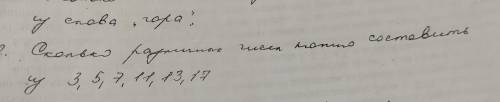 из слова „гора".
?. Сколько различных чисел можно составить
из 3, 5, 7, 11, 13, 17